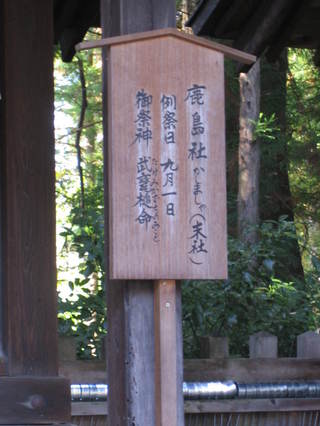 鹿島社かしましゃ(末社)
例祭日 九月一日
御祭神 武甕槌命
たけみかづちのみこと